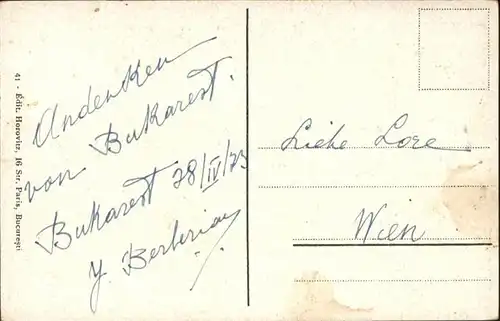 41 - Édit. Horovitz, 16 Str. Paris, București
Andenken
von Bukarest.
Bukarest 28/IV/23
Y. Berberian
Liebe Lore
Wien